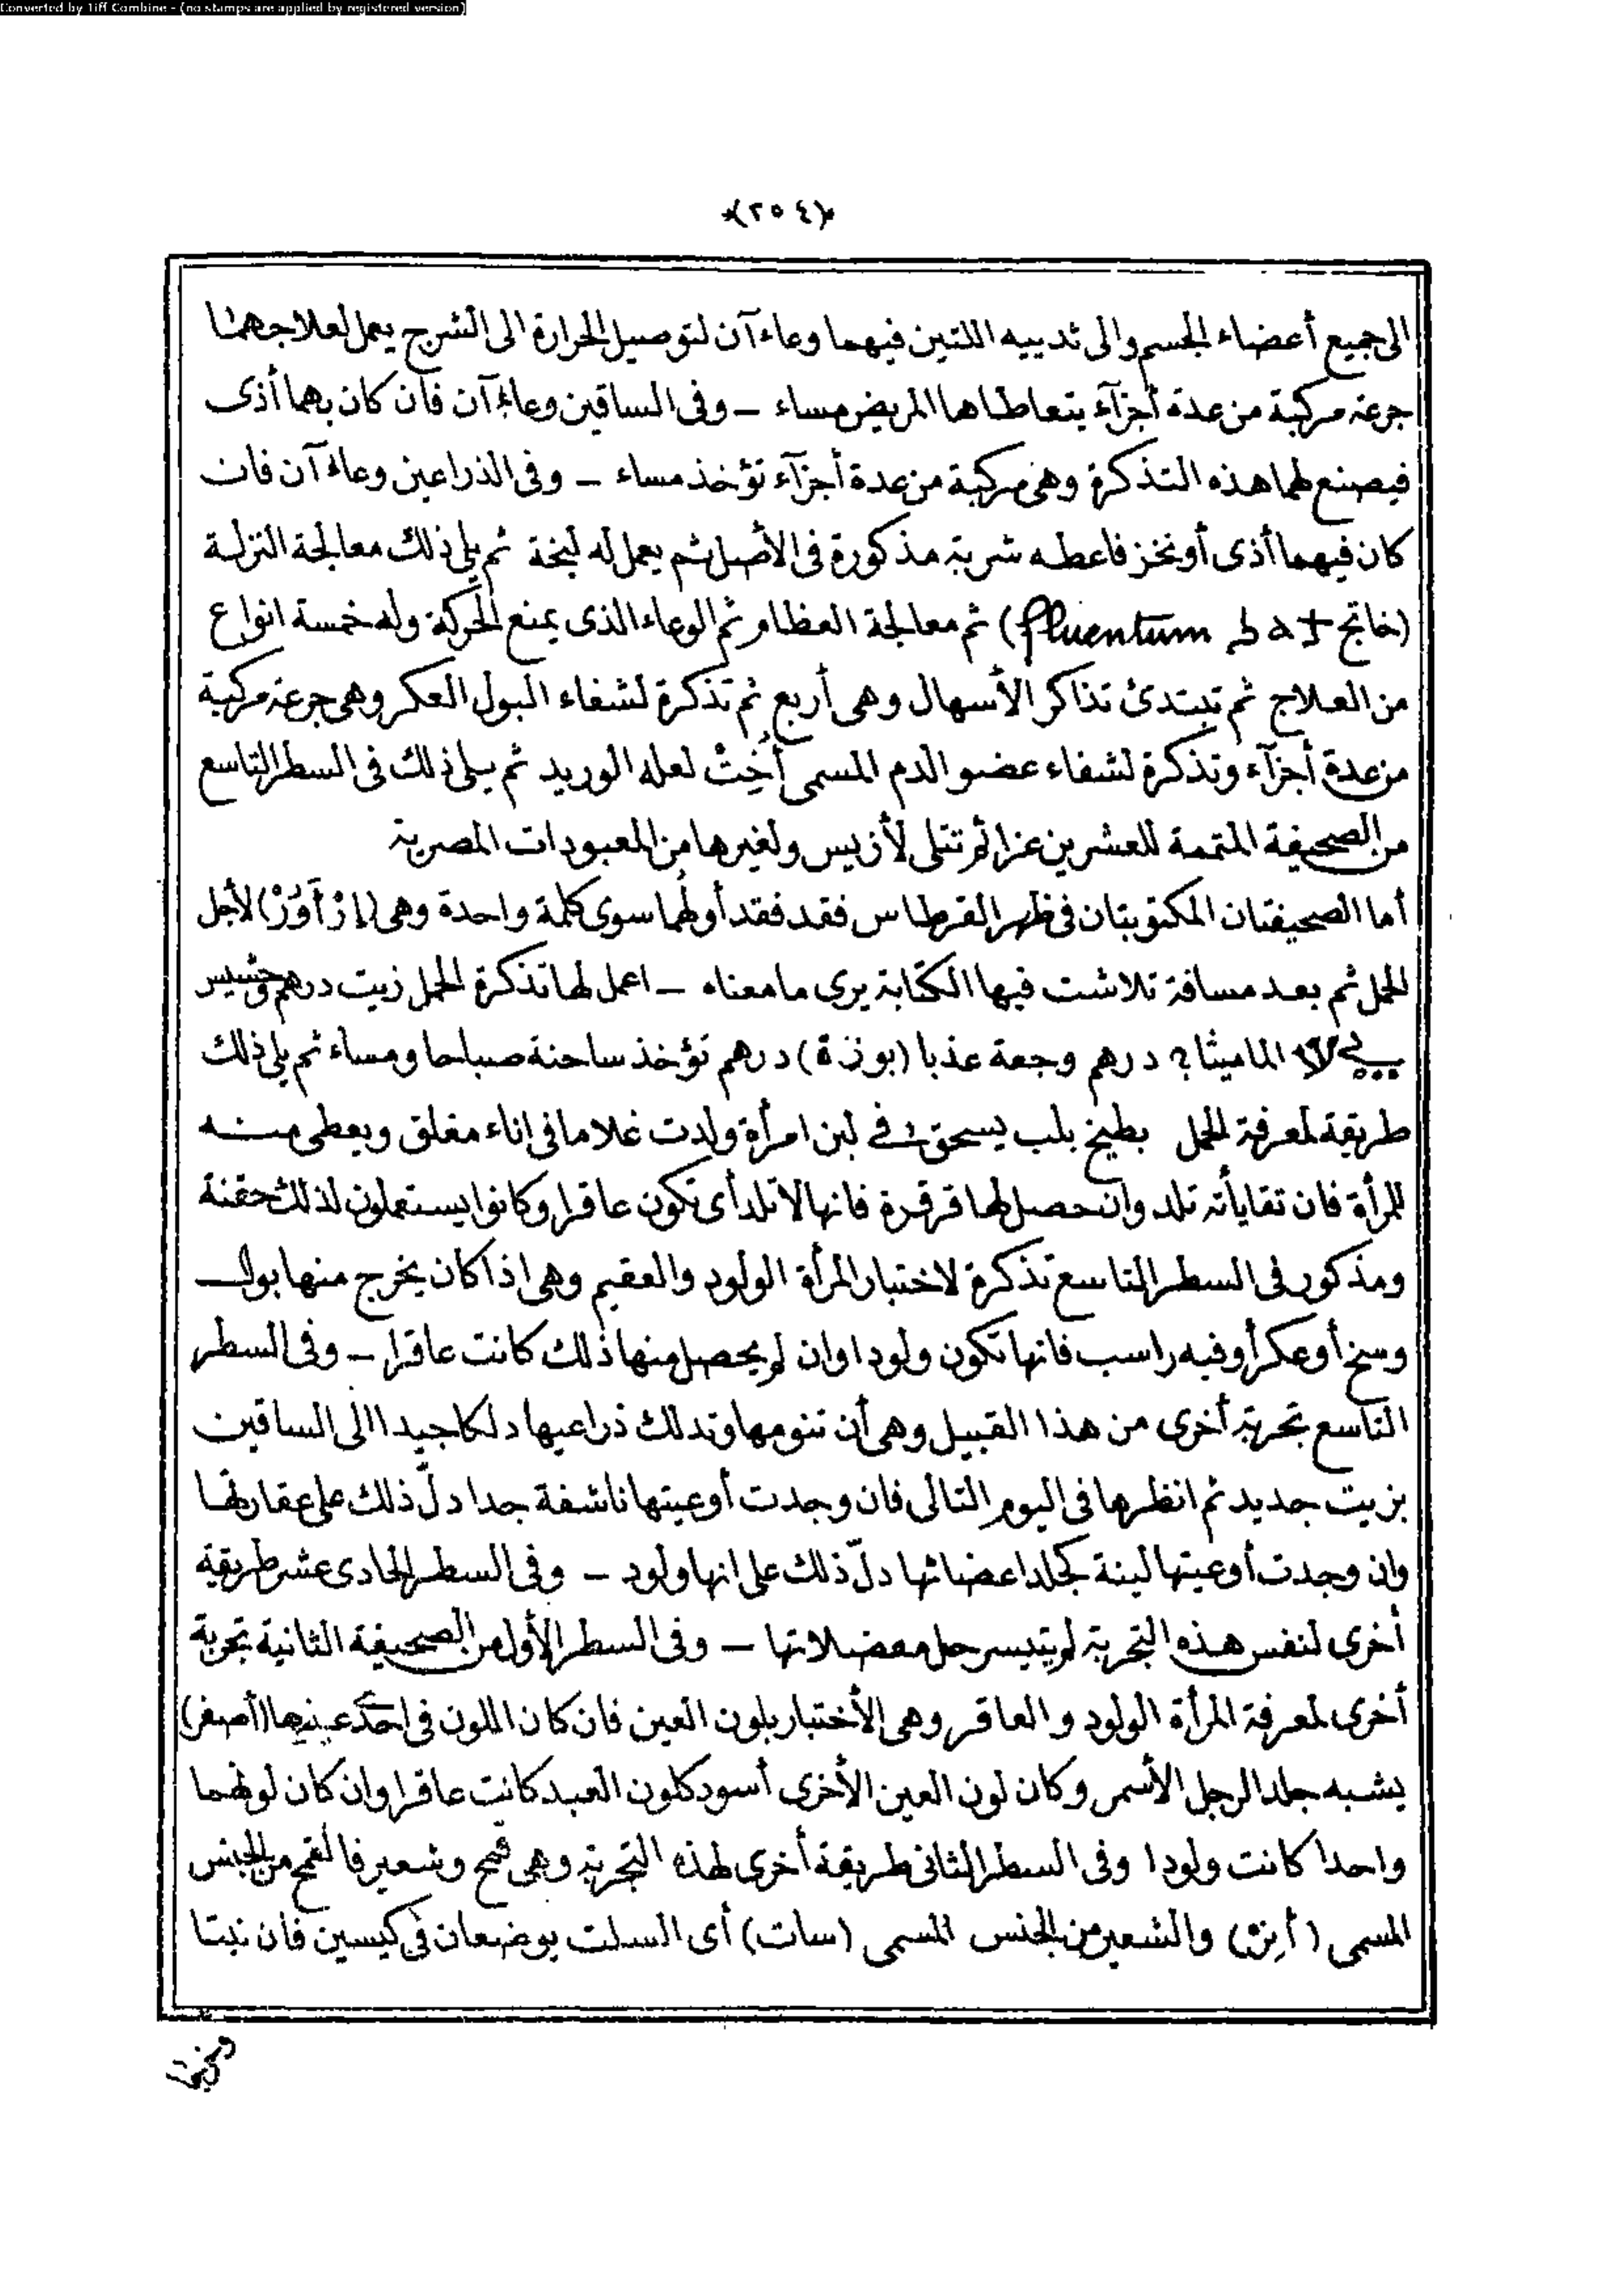 Converted by Tiff Combine - (no stamps are applied by registered version)
﴿٢٥٤﴾
الى جميع أعضاء الجسم والى ثدييه اللتين فيهما وعاءآن لتوصيل الحرارة الى الشرج يعمل لعلاجهما
جرعة مركبة من عدة أجزآء يتعاطاها المريض مساء – وفى الساقين وعاءآن فان كان بهما أذى
فيصنع لهما هذه التذكرة وهى مركبة من عدة أجزآء تؤخذ مساء – وفى الذراعين وعاءآن فان
كان فيهما أذى أو نخز فاعطه شربة مذكورة فى الأصل ثم يعمل له لبخة ثم يلى ذلك معالجة النزلة
(خاتج fluentum) ثم معالجة العظام ثم الوعاء الذى يمنع الحركة وله خمسة انواع
من العلاج ثم تبتدئ تذاكر الأسهال وهى أربع ثم تذكرة لشفاء البول العكر وهى جرعة مركبة
من عدة أجزآء وتذكرة لشفاء عضو الدم المسمى أخت لعله الوريد ثم يلى ذلك فى السطر التاسع
من الصحيفة المتممة للعشرين عزائم تتلى لأزيس ولغيرها من المعبودات المصرية
أما الصحيفتان المكتوبتان فى ظهر القرطاس فقد فقد أولهما سوى كلمة واحدة وهى لأجل
الحمل ثم بعد مسافة تلاشت فيها الكتابة يرى ما معناه – اعمل لها تذكرة الحمل زيت درهم وحشيش
الماميثا؟ درهم وجعة عذبا (بوزة) درهم تؤخذ ساخنة صباحا ومساء ثم يلى ذلك
طريقة لمعرفة الحمل بطيخ بلب يسحق فى لبن امرأة ولدت غلاما فى إناء مغلق ويعطى منه
للمرأة فان تقايأته تلد وان حصل لها قرقرة فانها لا تلد أى تكون عاقرا وكانوا يستعملون لذلك حقنة
ومذكور فى السطر التاسع تذكرة لاختبار المرأة الولود والعقيم وهى اذا كان يخرج منها بول
وسخ أو عكر أو فيه راسب فانها تكون ولودا وان لم يحصل منها ذلك كانت عاقرا – وفى السطر
التاسع تجربة أخرى من هذا القبيل وهى أن تنومها وتدلك ذراعيها دلكا جيدا الى الساقين
بزيت جديد ثم انظرها فى اليوم التالى فان وجدت أوعيتها ناشفة جدا دلّ ذلك على عقارتها
وان وجدت أوعيتها لينة كجلد اعضائها دلّ ذلك على انها ولود – وفى السطر الحادى عشر طريقة
أخرى لنفس هذه التجربة لم يتيسر حل معضلاتها – وفى السطر الأول من الصحيفة الثانية تجربة
أخرى لمعرفة المرأة الولود والعاقر وهى الأختبار بلون العين فان كان اللون فى احدى عينيها (أصفر)
يشبه جلد الرجل الأسمر وكان لون العين الأخرى أسود كلون العبد كانت عاقرا وان كان لونهما
واحدا كانت ولودا وفى السطر الثانى طريقة أخرى لهذه التجربة وهى قمح وشعير فالقمح من الجنس
المسمى والشعير من الجنس المسمى (سات) أى السلت يوضعان فى كيسين فان نبتا